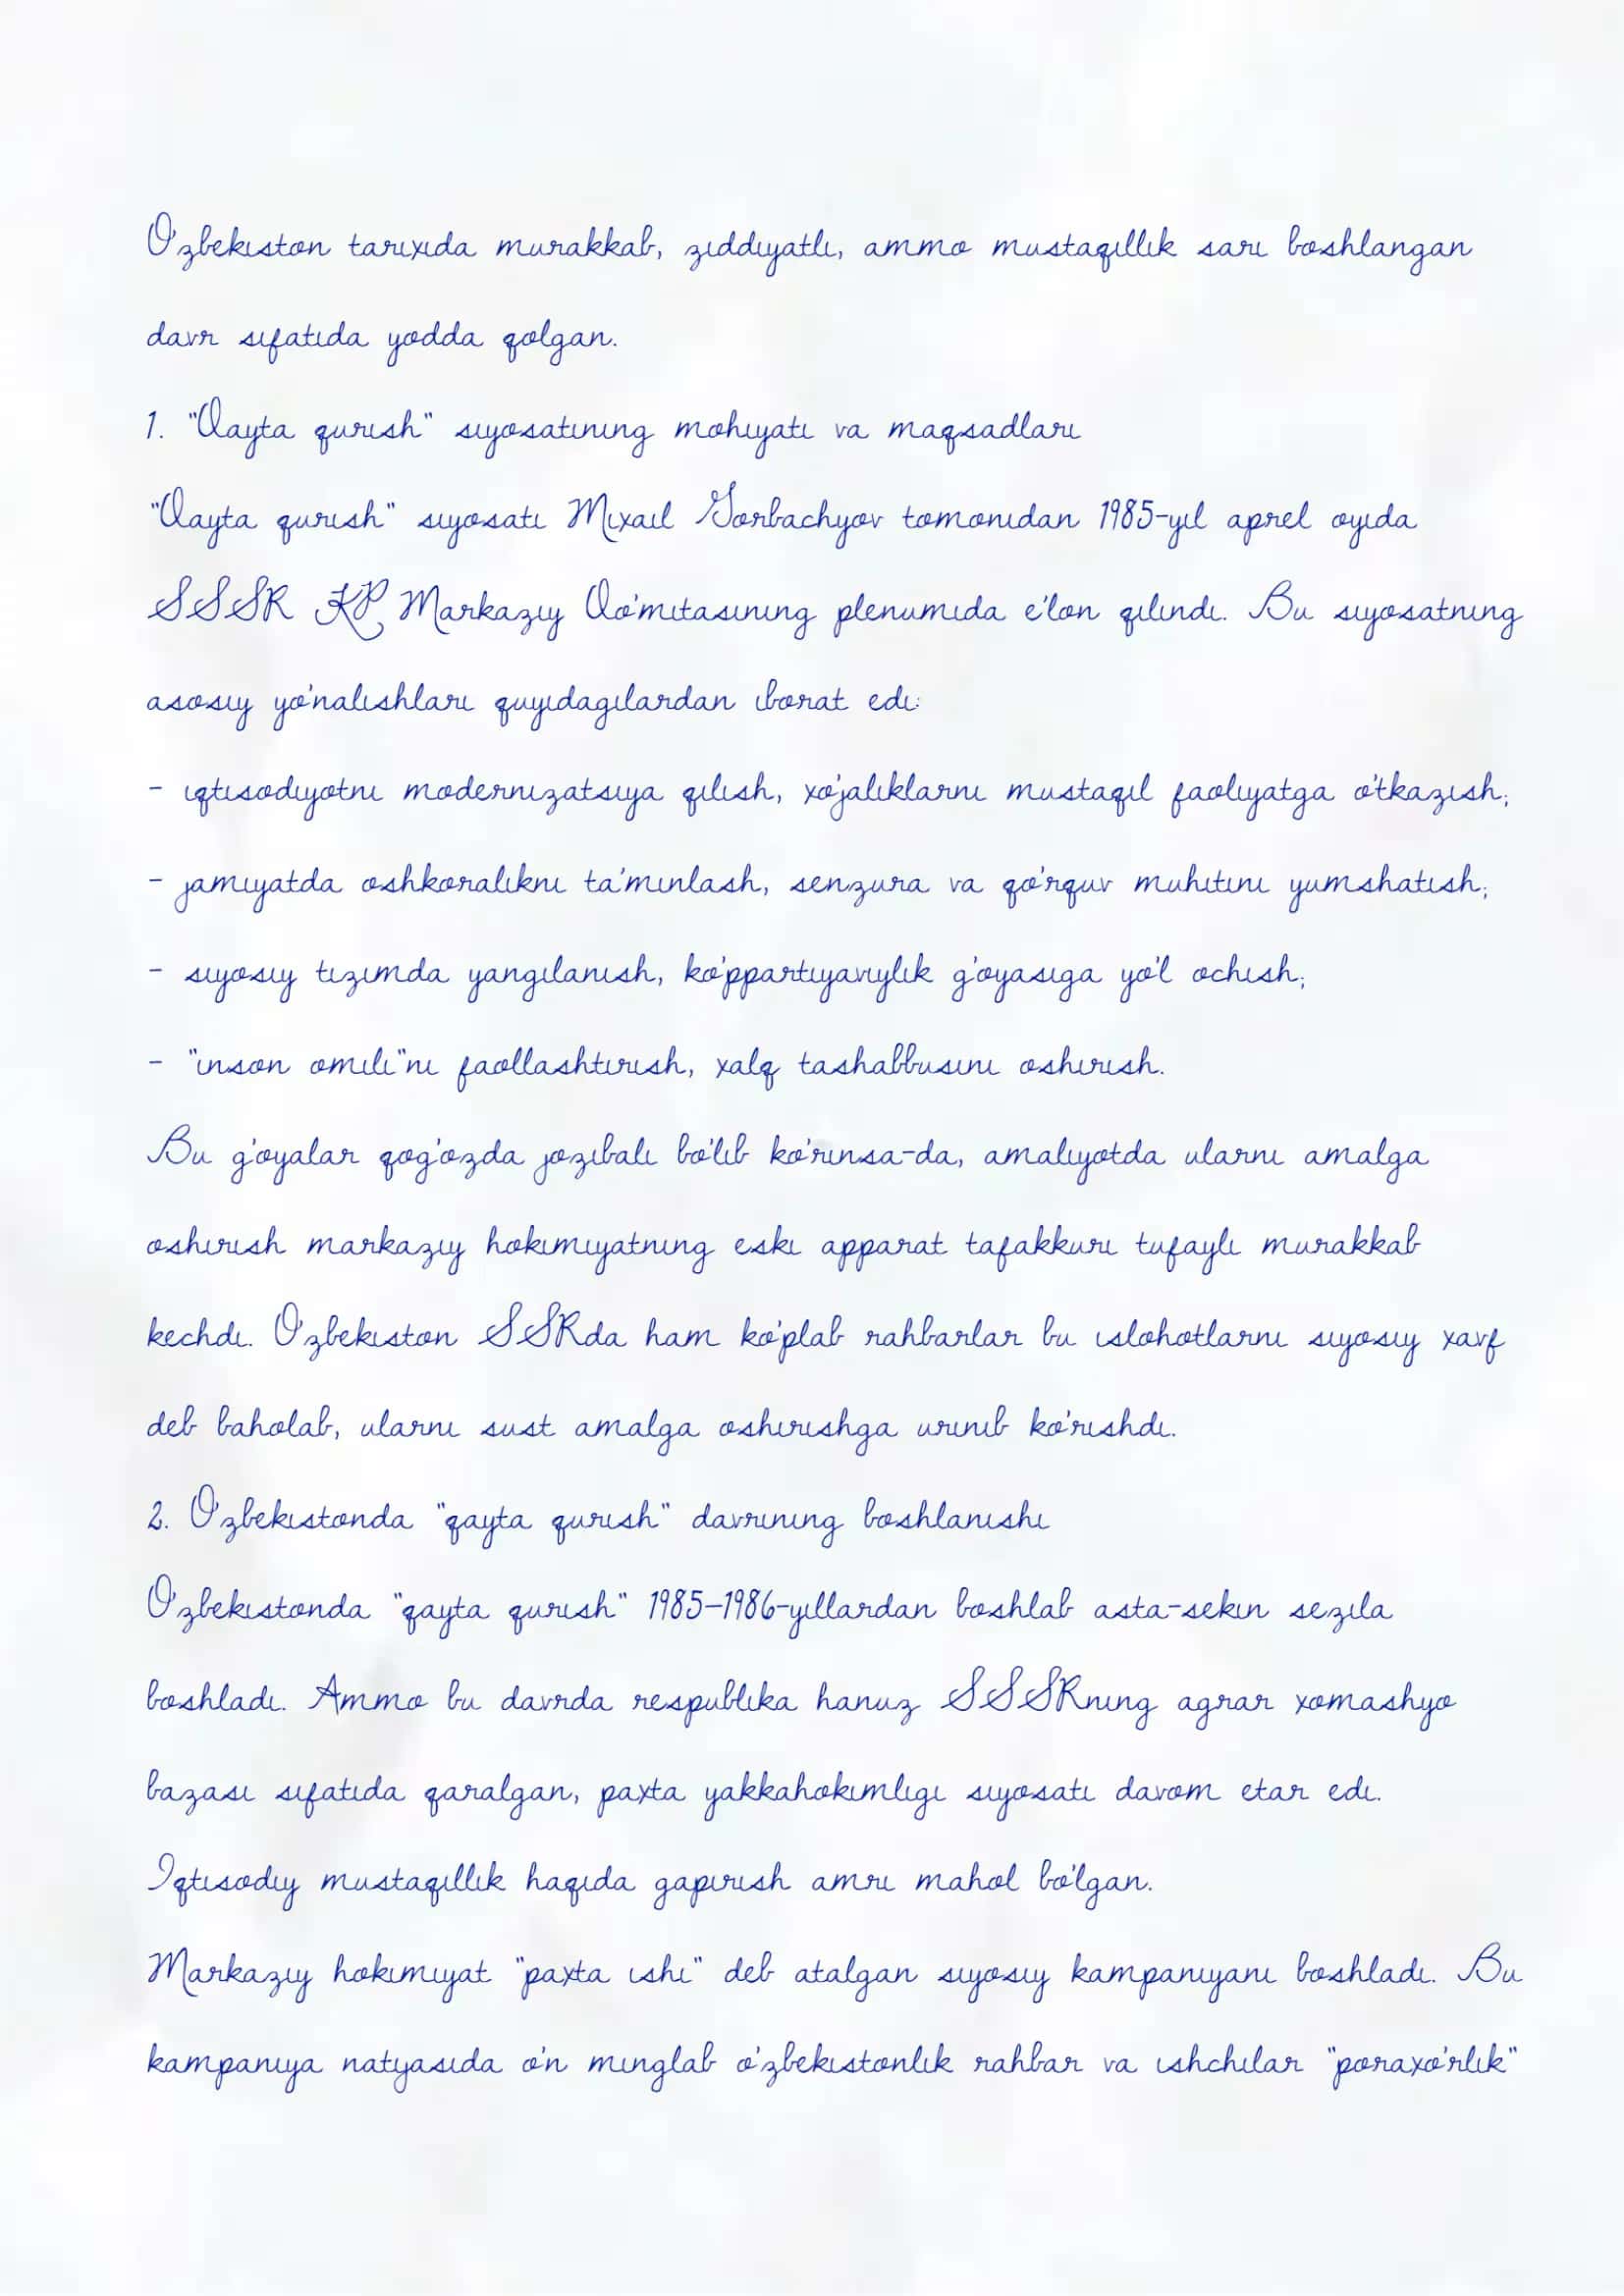 O'zbekiston tarixida murakkab, ziddiyatli, ammo mustaqillik sari boshlangan
davr sifatida yodda qolgan.
1. "Qayta qurish" siyosatining mohiyati va maqsadlari
"Qayta qurish" siyosati Mixail Gorbachyov tomonidan 1985-yil aprel oyida
SSSR KP Markaziy Qo'mitasining plenumida e'lon qilindi. Bu siyosatning
asosiy yo'nalishlari quyidagilardan iborat edi:
- iqtisodiyotni modernizatsiya qilish, xo'jaliklarni mustaqil faoliyatga o'tkazish;
- jamiyatda oshkoralikni ta'minlash, senzura va qo'rquv muhitini yumshatish;
- siyosiy tizimda yangilanish, ko'ppartiyaviylik g'oyasiga yo'l ochish;
- "inson omili"ni faollashtirish, xalq tashabbusini oshirish.
Bu g'oyalar qog'ozda jozibali bo'lib ko'rinsa-da, amaliyotda ularni amalga
oshirish markaziy hokimiyatning eski apparat tafakkuri tufayli murakkab
kechdi. O'zbekiston SSRda ham ko'plab rahbarlar bu islohotlarni siyosiy xavf
deb baholab, ularni sust amalga oshirishga urinib ko'rishdi.
2. O'zbekistonda "qayta qurish" davrining boshlanishi
O'zbekistonda "qayta qurish" 1985–1986-yillardan boshlab asta-sekin sezila
boshladi. Ammo bu davrda respublika hanuz SSSRning agrar xomashyo
bazasi sifatida qaralgan, paxta yakkahokimligi siyosati davom etar edi.
Iqtisodiy mustaqillik haqida gapirish amri mahol bo'lgan.
Markaziy hokimiyat "paxta ishi" deb atalgan siyosiy kampaniyani boshladi. Bu
kampaniya natyasida o'n minglab o'zbekistonlik rahbar va ishchilar "poraxo'rlik"